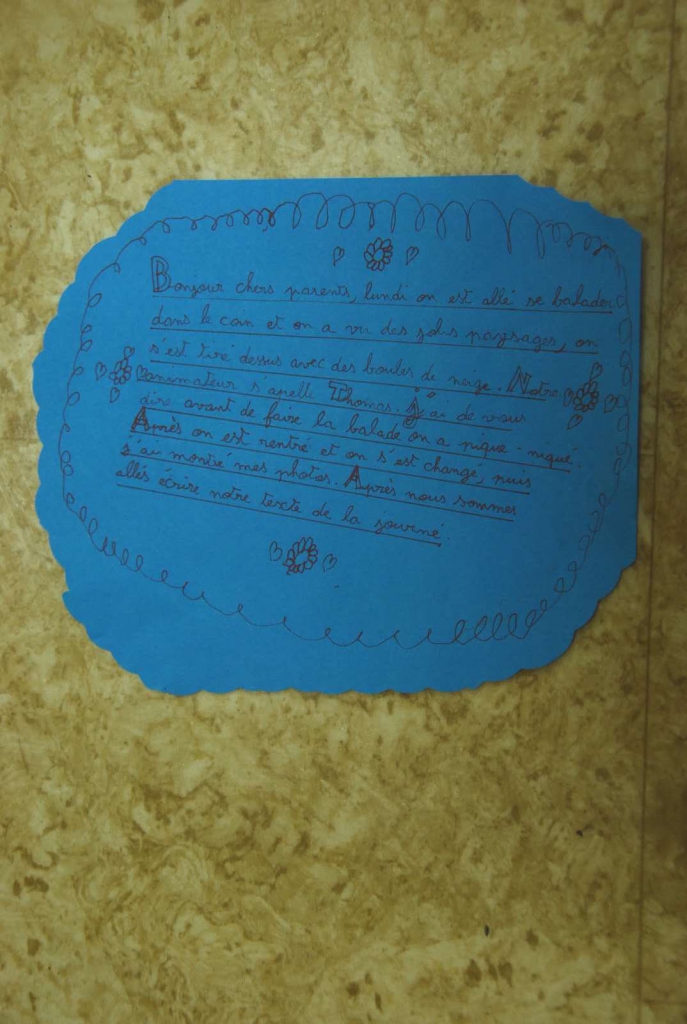 Bonjour chers parents, lundi on est allé se balader
dans le coin et on a vu des jolis paysages, on
s'est tiré dessus avec des boules de neige. Notre
animateur s'apelle Thomas. J'ai de vous
dire avant de faire la balade on a pique-niqué.
Après on est rentré et on s'est changé, puis
j'ai montré mes photos. Après nous sommes
allés écrire notre texte de la journé.